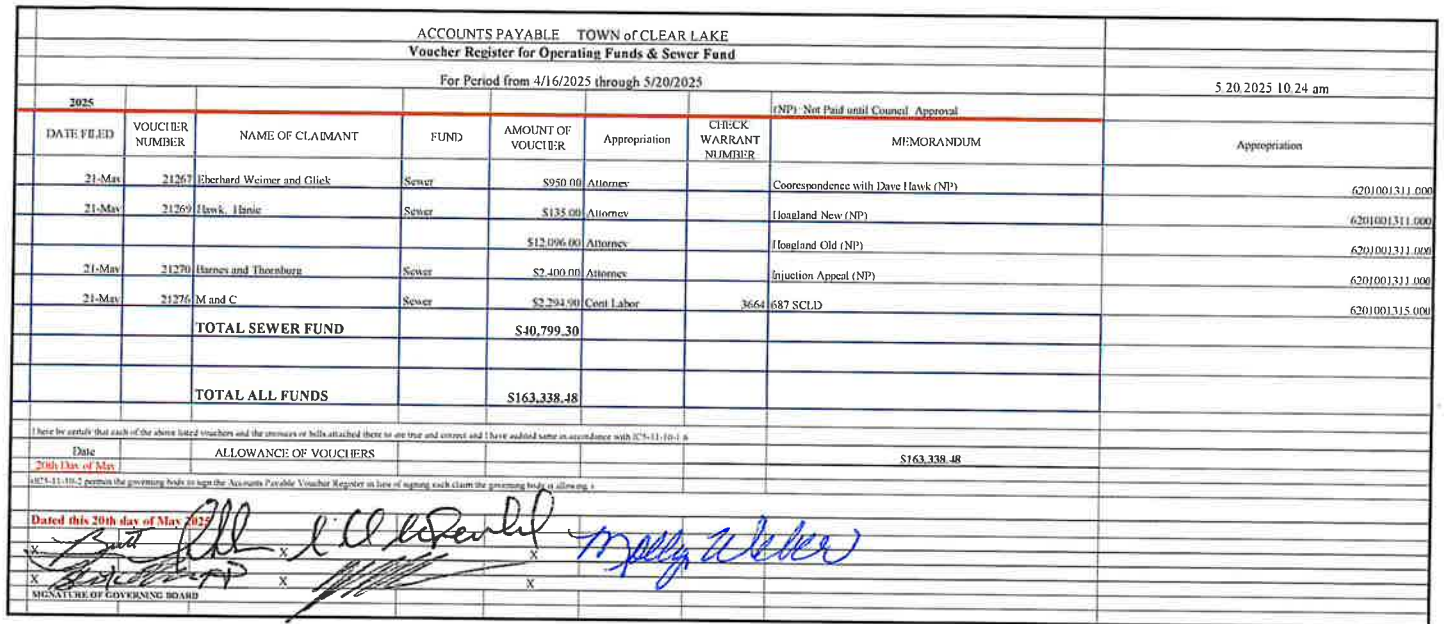 ACCOUNTS PAYABLE TOWN of CLEAR LAKE
Voucher Register for Operating Funds & Sewer Fund
For Period from 4/16/2025 through 5/20/2025
5.20.2025 10.24 am
2025 (NP): Not Paid until Council Approval
DATE FILED VOUCHER NUMBER NAME OF CLAIMANT FUND AMOUNT OF VOUCHER Appropriation CHECK WARRANT NUMBER MEMORANDUM Appropriation
21-May 21267 Eberhard Weimer and Glick Sewer $950.00 Attorney Coorespondence with Dave Hawk (NP) 6201001311.000
21-May 21269 Hawk, Hanie Sewer $135.00 Attorney Hoagland New (NP) 6201001311.000
$12,096.00 Attorney Hoagland Old (NP) 6201001311.000
21-May 21270 Barnes and Thornburg Sewer $2,400.00 Attorney Injuction Appeal (NP) 6201001311.000
21-May 21276 M and C Sewer $2,294.90 Cont Labor 3664 687 SCLD 6201001315.000
TOTAL SEWER FUND $40,799.30
TOTAL ALL FUNDS $163,338.48
I here by certify that each of the above listed vouchers and the invoices or bills attached there to are true and correct and I have audited same in accordance with IC5-11-10-1.6
Date ALLOWANCE OF VOUCHERS $163,338.48
20th Day of May
(IC5-11-10-2 permits the governing body to sign the Accounts Payable Voucher Register in lieu of signing each claim the governing body is allowing.)
Dated this 20th day of May 2025
X X X Molly Weber
X X X
SIGNATURE OF GOVERNING BOARD